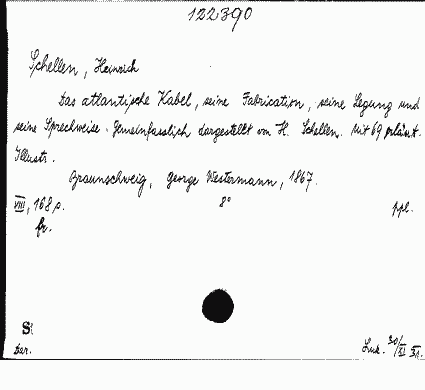 122390
Schellen, Heinrich
Das atlantische Kabel, seine Fabrication, seine Legung und
seine Sprechweise. Gemeinfasslich dargestellt von H. Schellen. Mit 69 erläut.
Illustr.
Braunschweig, George Westermann, 1867.
VIII, 168 p. 8° ppl.
fr.
S
Dar. Luk. 30/XI